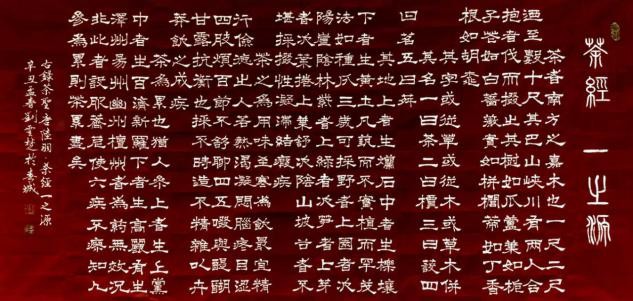 茶經 一之源
茶者南方之嘉木也一尺二尺
迺至數十尺其巴山峽川有兩人合
抱者伐而掇之其樹如瓜蘆葉如梔
子花如白薔薇實如栟櫚蒂如丁香
根如胡桃
其字或從草或從木或草木併
其名一曰茶二曰檟三曰蔎四
曰茗五曰荈
其地上者生爛石中者生櫟壤
下者生黃土凡藝而不實植而罕茂
法如種瓜三歲可採野者上園者次
陽崖陰林紫者上綠者次笋者上芽
者次葉捲上葉舒次陰山坡谷者不
堪採掇性凝滯結瘕疾
茶之為用味至寒為飲最宜精
行儉德之人若熱渴凝悶腦疼目澀
四肢煩百節不舒聊四五啜與醍醐
甘露抗衡也採不時造不精雜以卉
莽飲之成疾
茶為累也猶人參上者生上黨
中者生百濟新羅下者生高麗有生
澤州易州幽州檀州者為藥無效況
非此者設服薺苨使六疾不瘳知人
參為累則茶累盡矣
右錄茶聖唐陸羽茶經一之源
辛丑孟春劉雲楚於春城